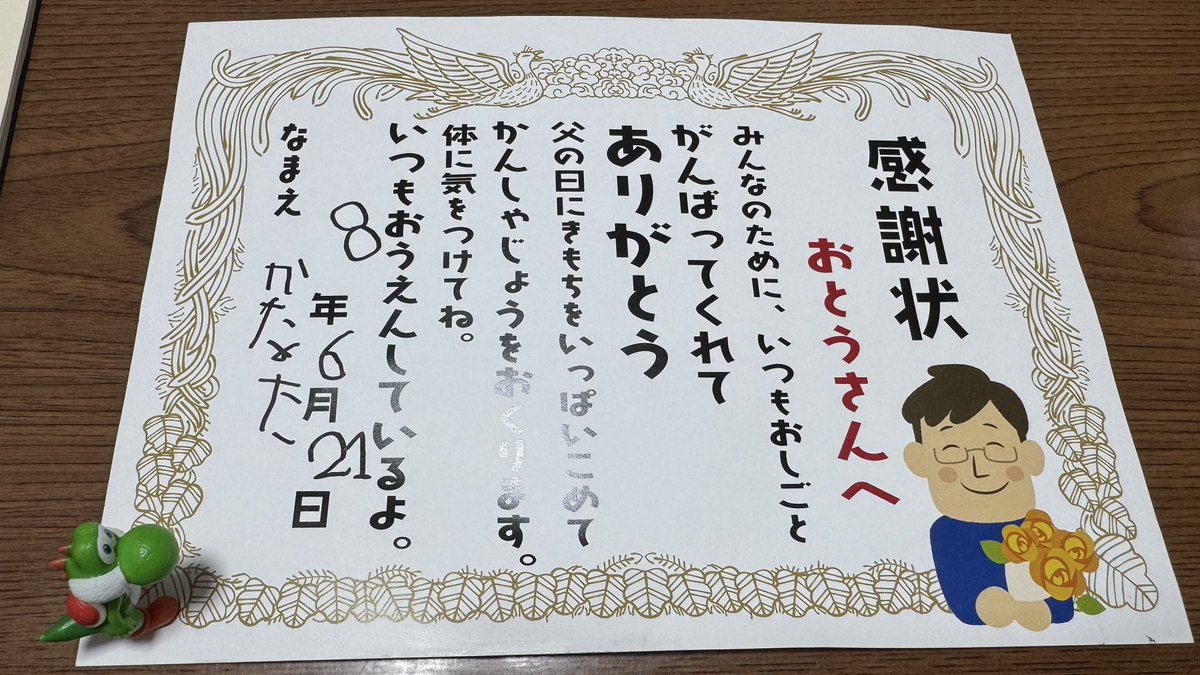 感謝状
おとうさんへ
みんなのために、いつもおしごと
がんばってくれて
ありがとう
父の日にきもちをいっぱいこめて
かんしゃじょうをおくります。
体に気をつけてね。
いつもおうえんしているよ。
8年6月21日
なまえ かなた